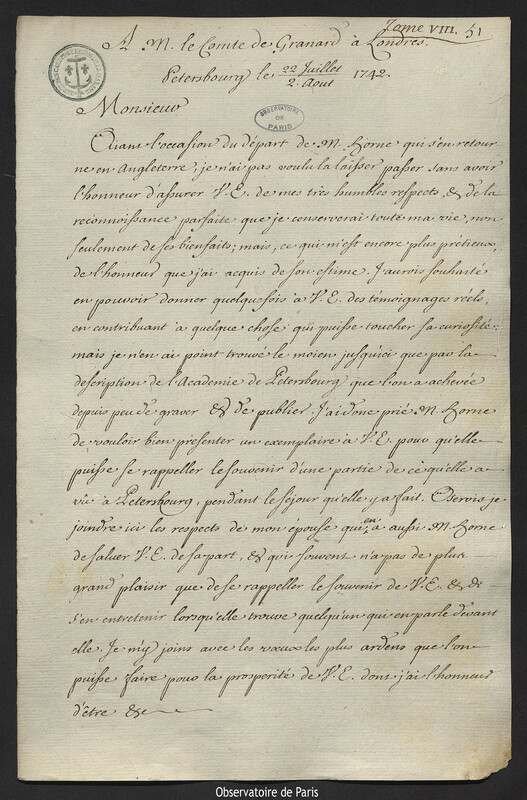 Tome VIII. 51
A M. le Comte de Granard à Londres.
Petersbourg le 22 Juillet / 2. Aout 1742.
Monsieur
OBSERVATOIRE DE PARIS
Aiant l'occasion du départ de M. Horne qui s'en retour
ne en Angleterre, je n'ai pas voulu la laisser passer sans avoir
l'honneur d'assurer V. E. de mes très humbles respects, & de la
reconnoissance parfaite que je conserverai toute ma vie, non
seulement de ses bienfaits; mais, ce qui m'est encore plus prétieux,
de l'honneur que j'ai acquis de son estime. J'aurois souhaité
en pouvoir donner quelquefois à V. E. des témoignages réels,
en contribuant à quelque chose qui puisse toucher sa curiosité:
mais je n'en ai point trouvé le moien jusqu'ici que par la
description de l'Academie de Petersbourg que l'on a achevée
depuis peu de graver & de publier. J'ai donc prié M. Horne
de vouloir bien présenter un exemplaire à V. E. pour qu'elle
puisse se rappeller le souvenir d'une partie de ce qu'elle a
vû à Petersbourg, pendant le séjour qu'elle y a fait. Oserois-je
joindre ici les respects de mon épouse qui en a aussi M. Horne
de saluer V. E. de sa part, & qui souvent n'a pas de plus
grand plaisir que de se rappeller le souvenir de V. E. & de
s'en entretenir lorsqu'elle trouve quelqu'un qui en parle devant
elle. Je m'y joins avec les vœux les plus ardens que l'on
puisse faire pour la prosperité de V. E. dont j'ai l'honneur
d'être &c
Observatoire de Paris